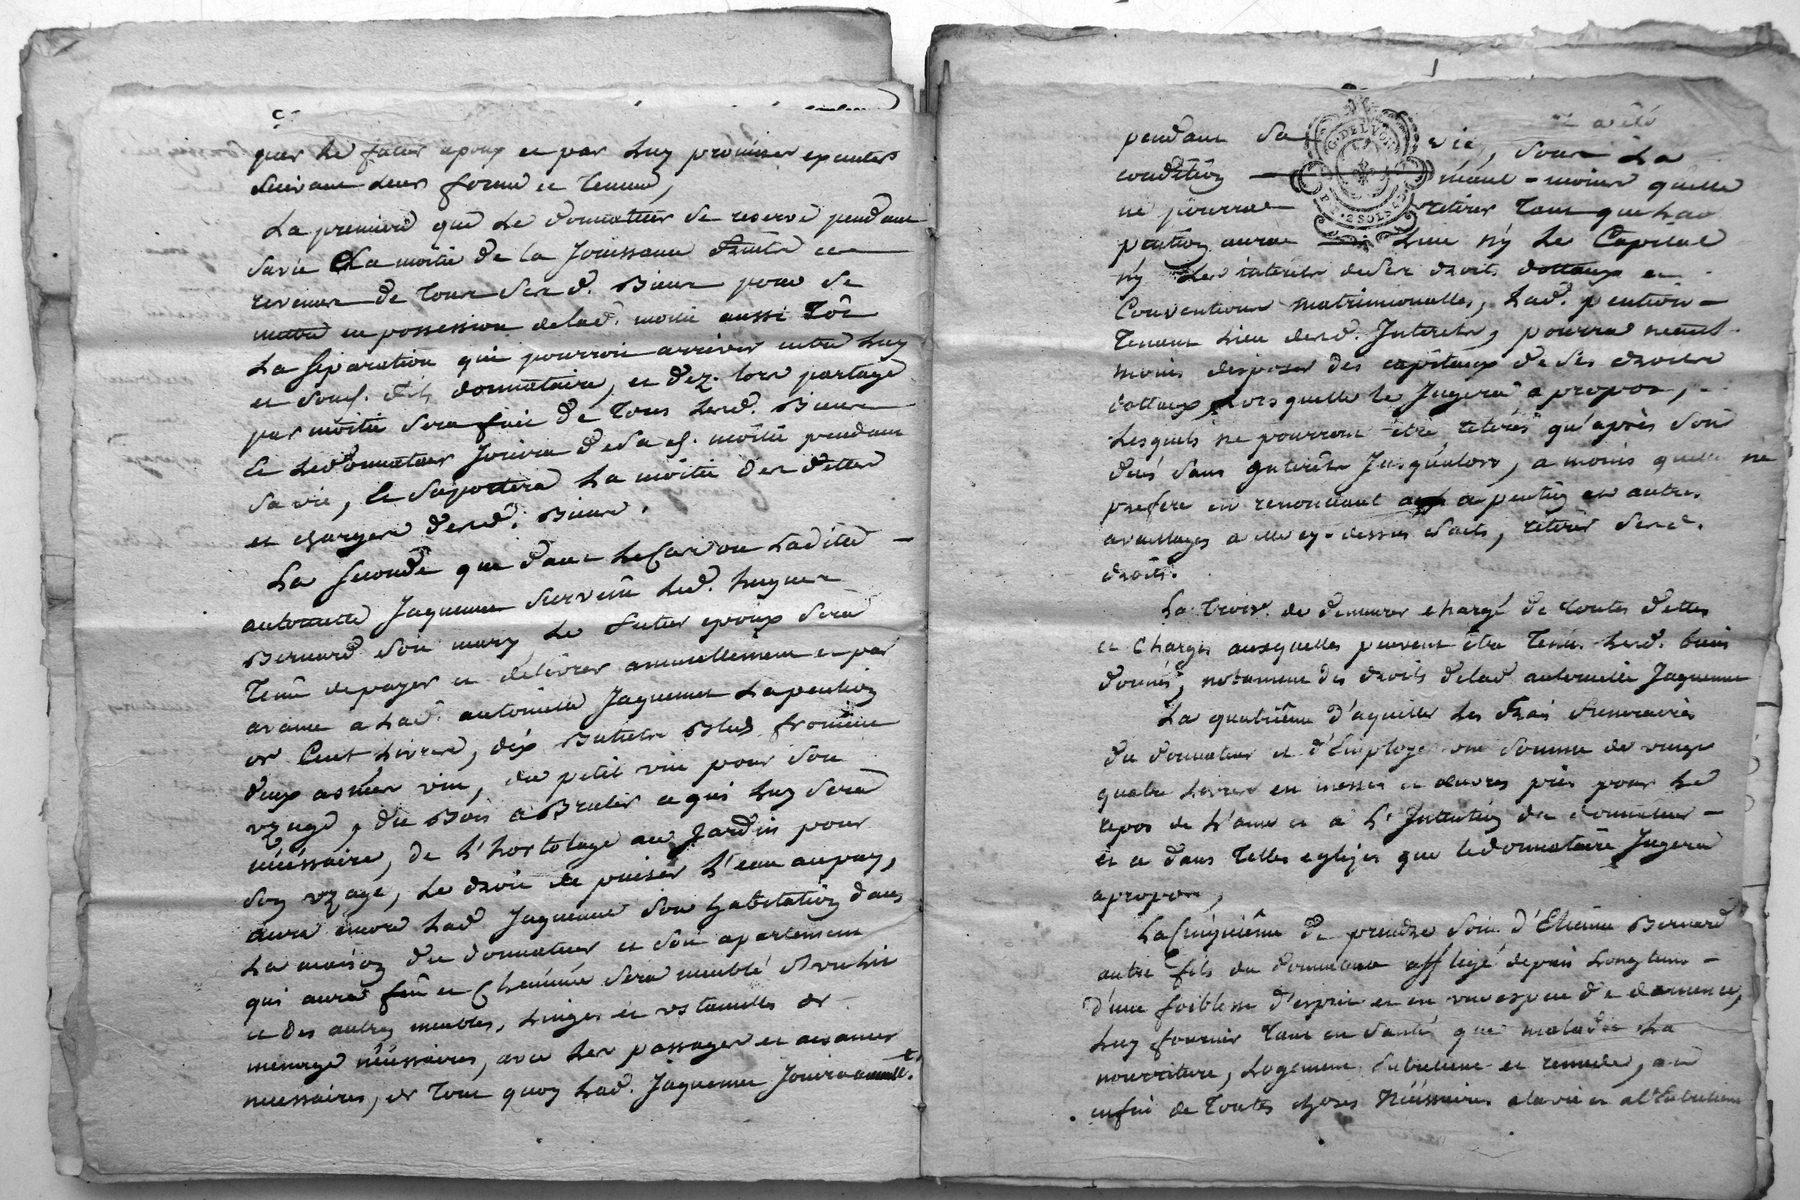 que le futur epoux et par luy promises executer
suivant leur forme et teneur,
La premiere que le donnateur se reserve pendant
sa vie La moitié de la Jouissance fruits et
revenus de tous sesd. Biens pour se
mettre en possession de lad. moitié aussi tôt
La separation qui pourroit arriver entre luy
et sond. fils donnataire, et dez lors partage
par moitié sera fait de tous lesd. Biens
et le donnateur Jouira de sad. moitié pendant
sa vie, et suportera La moitié des dettes
et charges desd. Biens.
La seconde que dans le Cas ou Ladite
antoinette Jaquemet survecût led. hugues
Bernard son mary, le futur epoux sera
tenû de payer et delivrer annuellement et par
avance a Lad. antoinette Jaquemet La pention
de Cent Livres, dix Bichets Bled froment
deux asnées vin, du petit vin pour son
uzage, du Bois a Bruler ce qui luy sera
nécéssaire, de l'hortolage au Jardin pour
son uzage, le droit de puiser l'eau au puy,
aura encore Lad Jaquemet son habitation dans
La maison du donnateur et son apartement
qui aura feu et Cheminée sera meublé d'un lit
et des autres meubles, Linges et ustancilles de
menage nécéssaires, avec les passages et aisances
necessaires, de tout quoy Lad. Jaquemet Jouira annuellt.
pendant sa vie, sous La
condition neant-moins quelle
ne pourra retirer tant que Lad
pention aura lieu ny le Capital
ny les interets de ses droits dottaux et
Conventions matrimionalles, Lad. pention
tenant lieu desd. Interets, pourra neant
moins disposer des capitaux de ses droits
dottaux, Lorsquelle le Jugera a propos,
Lesquels ne pourront être retirés qu'après son
décés sans interêts Jusqu'alors, a moins quelle ne
prefere en renoncant a la pention et autres
avantages a elle cy-dessus faits, retirer sesd.
droits.
La trois. de demeurer chargé de toutes dettes
et Charges auxquelles peuvent être tenus lesd. biens
donnés, notament des droits de lad antoinette Jaquemet
La quatriême d'aquitter les frais funeraires
du donnateur et d'Employer une somme de vingt
quatre Livres en messes et œuvres pies pour le
repos de l'ame et a l'Intention du donnateur
et ce dans telles eglises que le donnataire Jugera
apropos,
La Cinquiême de prendre soin d'Etienne Bernard
autre fils du donnateur affligé depuis Longtems
d'une foiblesse d'esprit et en une espece de demence,
Luy fournir tant en santé que maladie La
nourriture, Logement, entretient et remede, et
enfin de toutes choses nécéssaires a la vie et a l'Entretient
G. DE LYON
2 SOLS